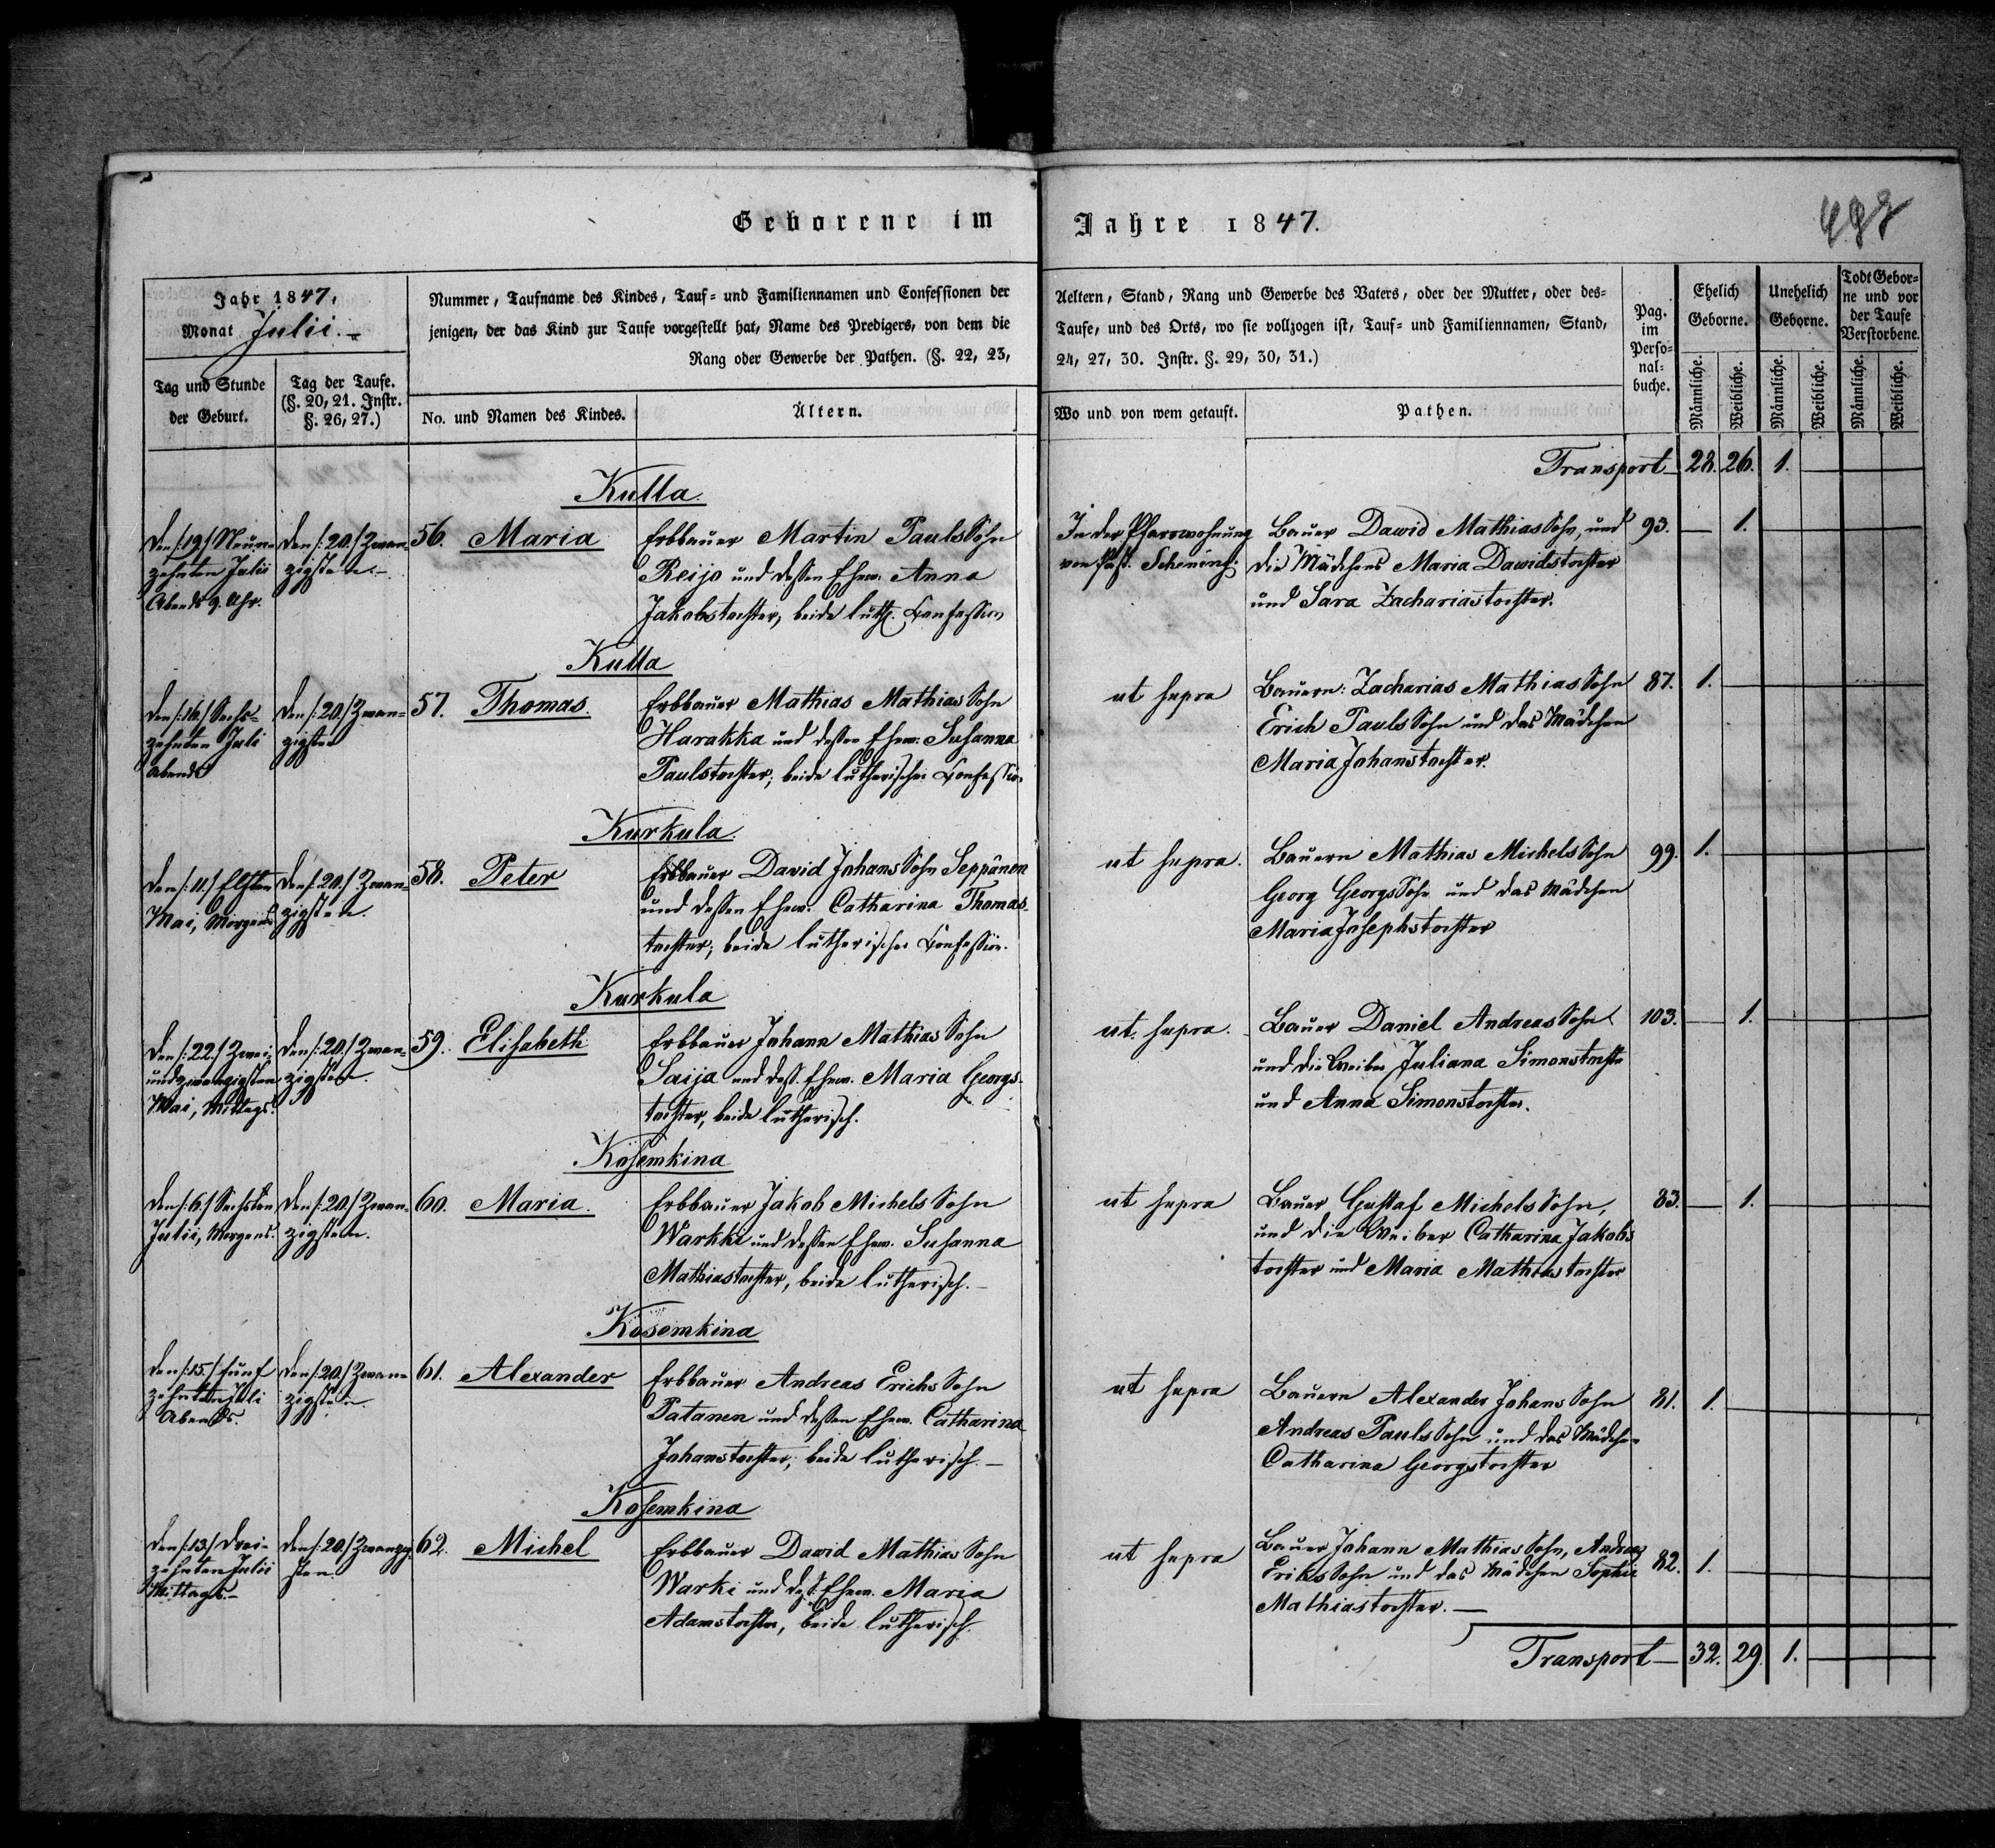 Geborene im Jahre 1847.
498
Jahr 1847,
Monat Julii.
Tag und Stunde der Geburt.
Tag der Taufe. (§. 20, 21. Instr. §. 26, 27.)
Nummer, Taufname des Kindes, Tauf= und Familiennamen und Confessionen der
jenigen, der das Kind zur Taufe vorgestellt hat, Name des Predigers, von dem die
Rang oder Gewerbe der Pathen. (§. 22, 23,
No. und Namen des Kindes.
Ältern.
Aeltern, Stand, Rang und Gewerbe des Vaters, oder der Mutter, oder des=
Taufe, und des Orts, wo sie vollzogen ist, Tauf= und Familiennamen, Stand,
24, 27, 30. Instr. §. 29, 30, 31.)
Wo und von wem getauft.
Pathen.
Pag. im Perso=nal=buche.
Ehelich Geborne.
Unehelich Geborne.
Todt Gebor=ne und vor der Taufe Verstorbene.
Männliche. Weibliche. Männliche. Weibliche. Männliche. Weibliche.
Transport 28. 26. 1.
Kulla.
Den /:19./ Neun=
zehnten Julii
Abends 9. Uhr.
Den /:20./ Zwan=
zigsten.
56. Maria
Erbbauer Martin Pauls Sohn
Reijo und dessen Ehew. Anna
Jakobstochter, beide luth. Confession
In der Pfarrwohnung
von Past. Schening.
Bauer Dawid Mathias Sohn, und
die Mädchens Maria Dawidstochter
und Sara Zachariastochter.
93. 1.
Kulla
Den /:16./ Sechs=
zehnten Juli
Abends
Den /:20./ Zwan=
zigsten
57. Thomas.
Erbbauer Mathias Mathias Sohn
Harakka und dessen Ehew: Susanna
Paulstochter; beide lutherischer Confession
ut supra
Bauern: Zacharias Mathias Sohn
Erich Pauls Sohn und das Mädchen
Maria Johanstochter.
87. 1.
Kurkula.
Den /:11./ Elften
Mai, Morgens
Den /:20./ Zwan=
zigsten.
58. Peter
Erbbauer David Johans Sohn Seppänen
und dessen Ehew. Catharina Thomas=
tochter; beide lutherischer Confession.
ut supra.
Bauern Mathias Michels Sohn
Georg Georgs Sohn und das Mädchen
Maria Josephstochter
99. 1.
Kurkula
Den /:22./ Zwei=
undzwanzigsten
Mai, Mittags.
Den /:20./ Zwan=
zigsten.
59. Elisabeth
Erbbauer Johann Mathias Sohn
Saija und dess. Ehew. Maria Georgs=
tochter, beide lutherisch.
ut supra.
Bauer Daniel Andreas Sohn
und die Weiber Juliana Simonstochter
und Anna Simonstochter.
103. 1.
Kosemkina
Den /:6./ Sechsten
Julii, Morgens.
Den /:20./ Zwan=
zigsten.
60. Maria.
Erbbauer Jakob Michels Sohn
Warkki und dessen Ehew. Susanna
Mathiastochter, beide lutherisch.
ut supra
Bauer Gustaf Michels Sohn,
und die Weiber Catharina Jakobs
tochter und Maria Mathiastochter
83. 1.
Kosemkina
Den /:15./ Fünf
zehnten Juli
Abends.
Den /:20./ Zwan=
zigsten.
61. Alexander
Erbbauer Andreas Erichs Sohn
Patanen und dessen Ehew. Catharina
Johanstochter, beide lutherisch.
ut supra
Bauern Alexander Johans Sohn
Andreas Pauls Sohn und das Mädchen
Catharina Georgstochter
81. 1.
Kosemkina
Den /:13./ Drei=
zehnten Julii
Mittags.
Den /:20./ Zwanzig
sten.
62. Michel
Erbbauer Dawid Mathias Sohn
Warki und dess. Ehew. Maria
Adamstochter, beide lutherisch.
ut supra
Bauer Johann Mathias Sohn, Andreas
Eriks Sohn und das Mädchen Sophia
Mathiastochter.
82. 1.
Transport 32. 29. 1.